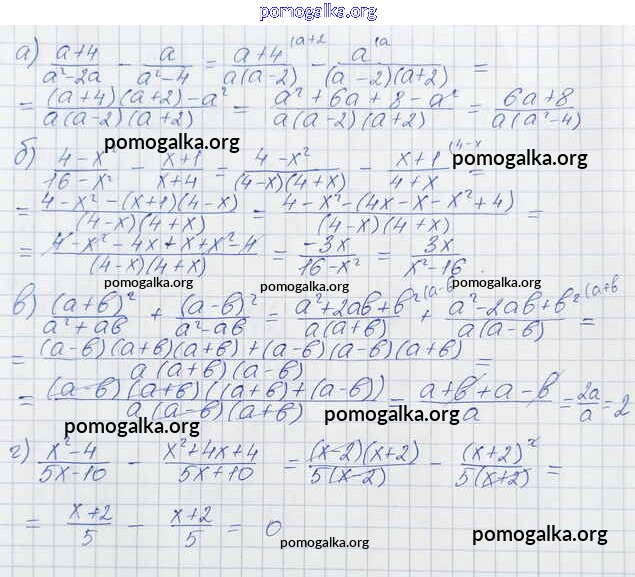 pomogalka.org
а) (a+4)/(a²-2a) - a/(a²-4) = (a+4)/(a(a-2)) |a+2 - a/((a-2)(a+2)) |a =
= ((a+4)(a+2)-a²)/(a(a-2)(a+2)) = (a²+6a+8-a²)/(a(a-2)(a+2)) = (6a+8)/(a(a²-4))
pomogalka.org
б) (4-x²)/(16-x²) - (x+1)/(x+4) = (4-x²)/((4-x)(4+x)) - (x+1)/(4+x) |4-x =
pomogalka.org
= (4-x²-(x+1)(4-x))/((4-x)(4+x)) = (4-x²-(4x-x-x²+4))/((4-x)(4+x)) =
= (4-x²-4x+x+x²-4)/((4-x)(4+x)) = (-3x)/(16-x²) = 3x/(x²-16).
pomogalka.org pomogalka.org pomogalka.org
в) (a+b)²/(a²+ab) + (a-b)²/(a²-ab) = (a²+2ab+b²)/(a(a+b)) |(a-b + (a²-2ab+b²)/(a(a-b)) |(a+b =
= ((a-b)(a+b)(a+b)+(a-b)(a-b)(a+b))/(a(a+b)(a-b)) =
= ((a-b)(a+b)((a+b)+(a-b)))/(a(a-b)(a+b)) = (a+b+a-b)/a = 2a/a = 2
pomogalka.org pomogalka.org
г) (x²-4)/(5x-10) - (x²+4x+4)/(5x+10) = ((x-2)(x+2))/(5(x-2)) - (x+2)²/(5(x+2)) =
= (x+2)/5 - (x+2)/5 = 0
pomogalka.org pomogalka.org